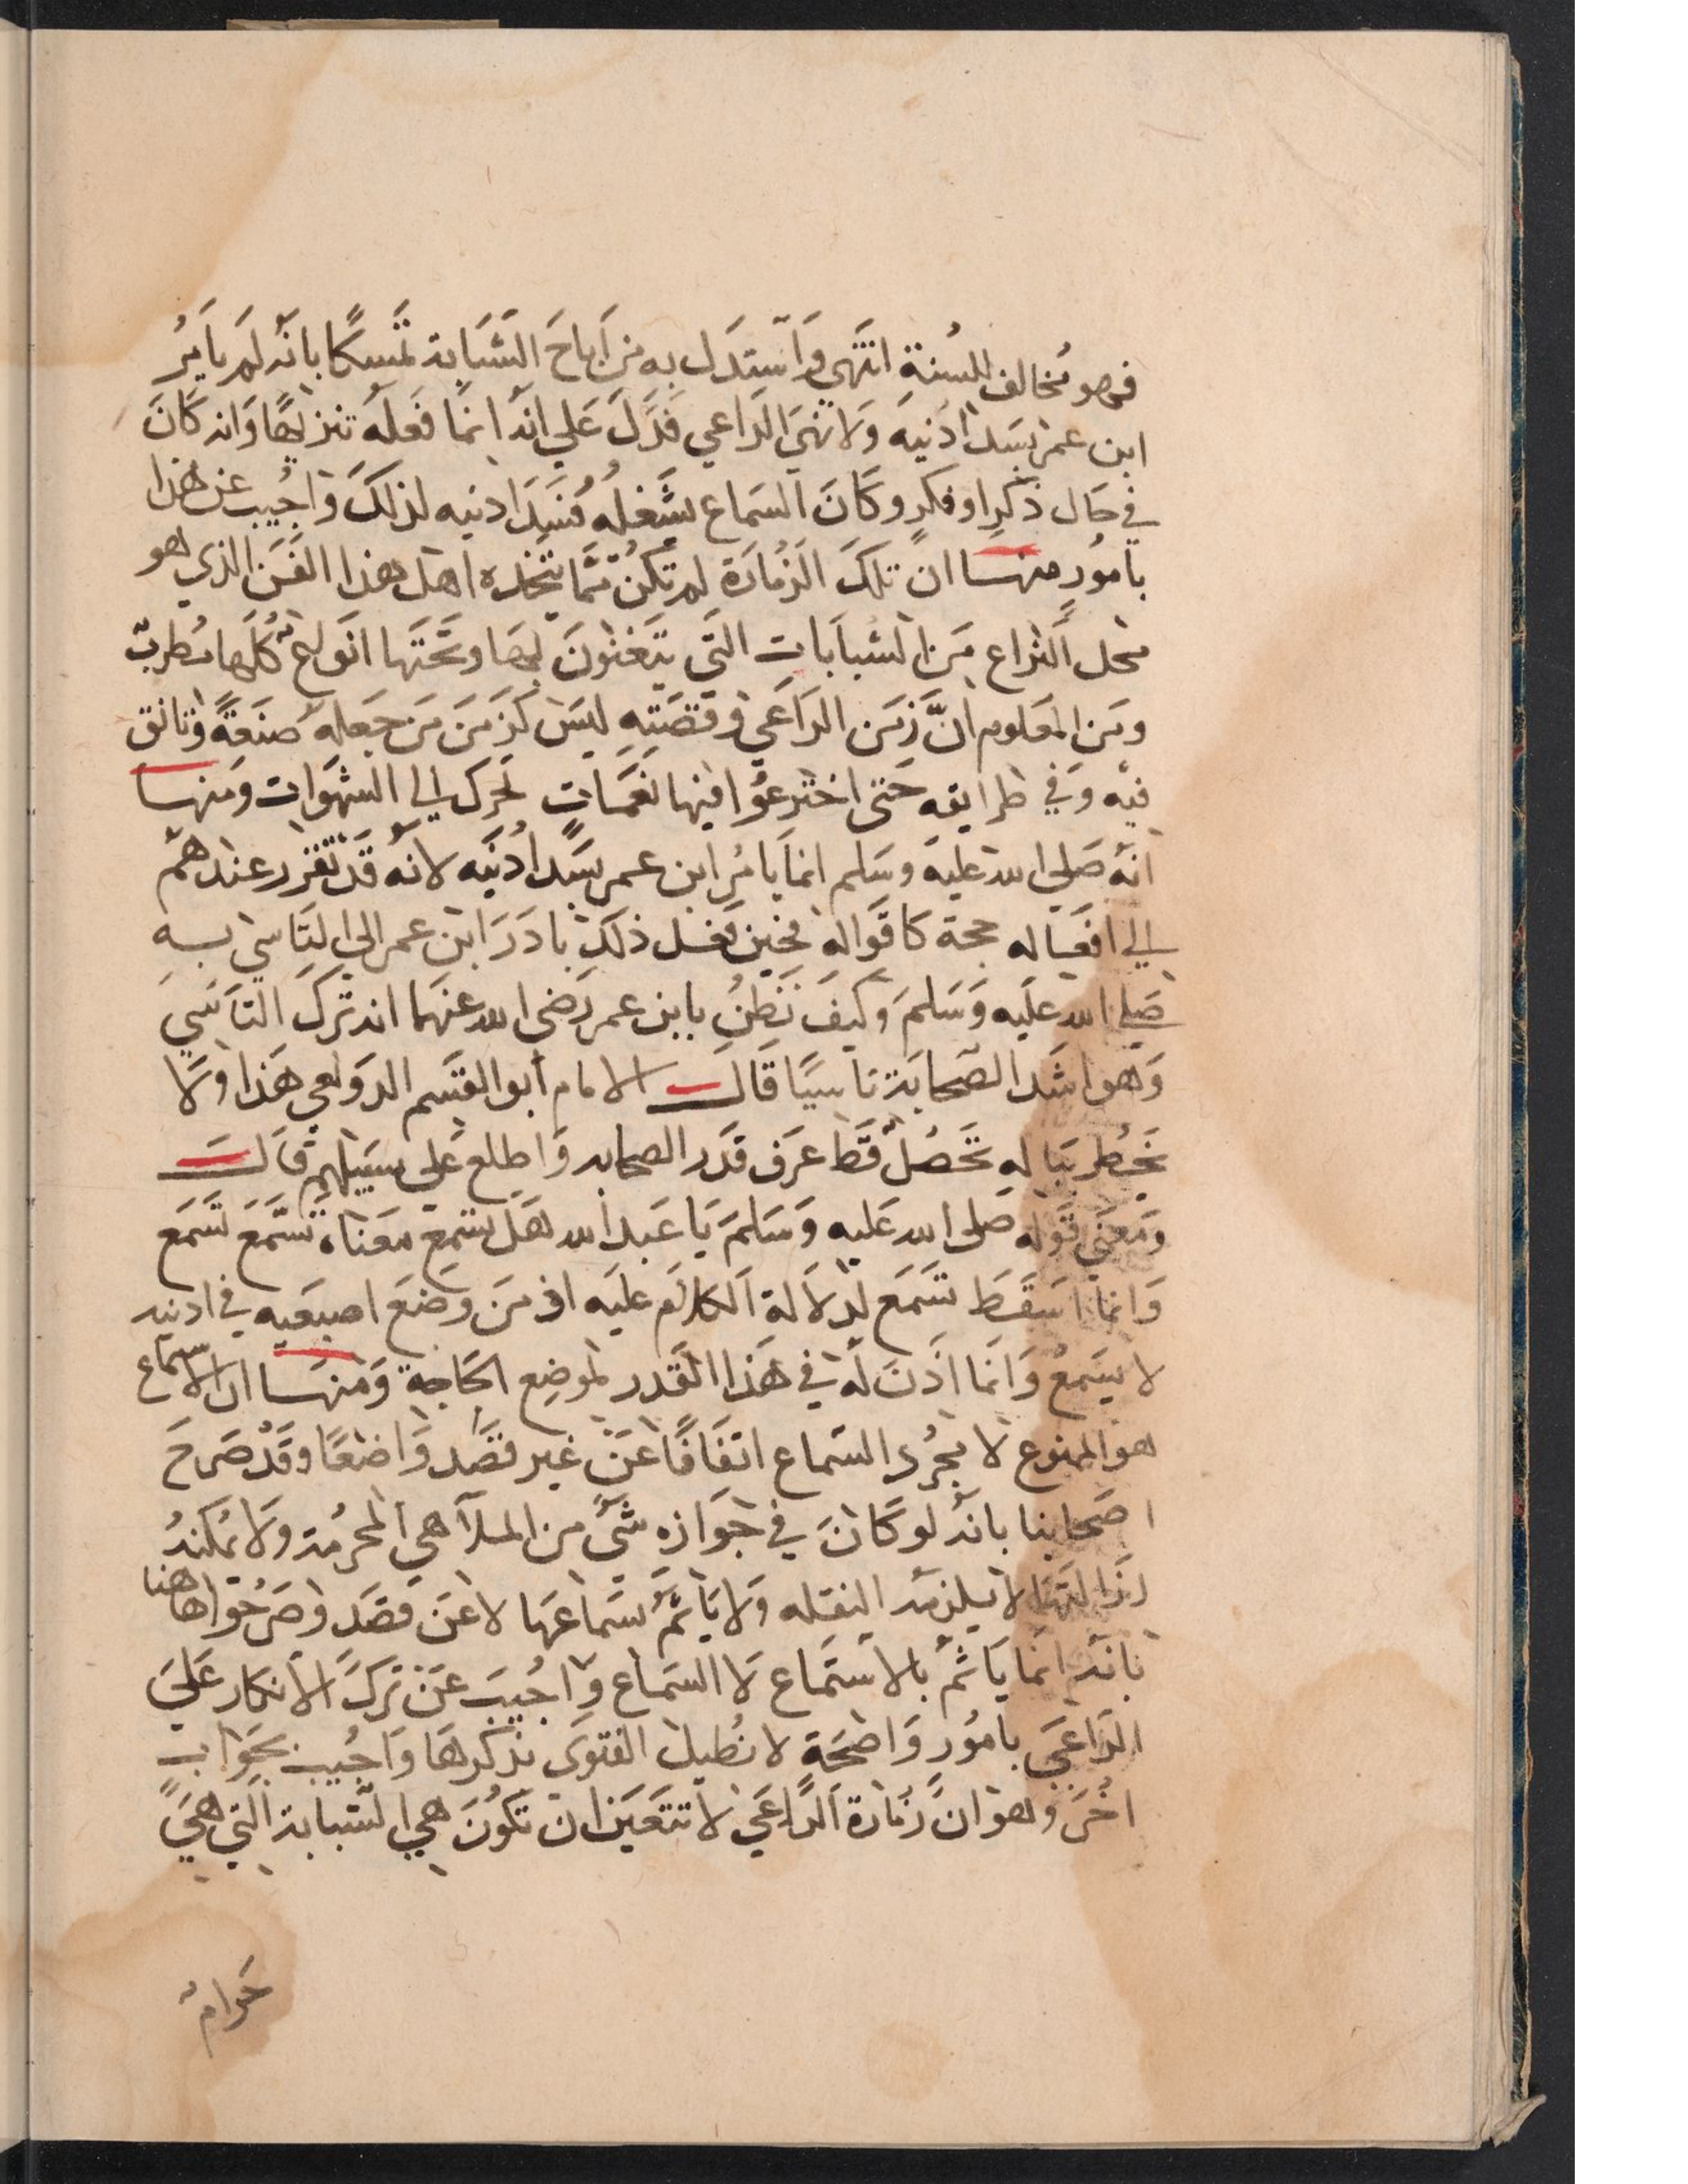 فهو مخالف للسنة انتهى واستدل به من اباح الشبابة تمسكا بانه لم يامر
ابن عمر بسد اذنيه ولا نهي الراعي فدل علي انه انما فعله تنزيها وانه كان
في حال ذكر او فكر وكان السماع يشغله فسد اذنيه لذلك واجيب عن هذا
بامور منها ان تلك الزمارة لم تكن مما يتخذه اهل هذا الفن الذي هو
محل النزاع من الشبابات التي يتغنون بها وتحتها انواع كلها مطرب
ومن المعلوم ان زمن الراعي وقصته ليس كزمن من جعله صنعة وتانق
فيه وفي طرايقه حتى اخترعوا فيها نغمات تحرك الي الشهوات ومنها
انه صلى الله عليه وسلم انما يامر ابن عمر بسد اذنيه لانه قد تقرر عندهم
الي افعاله حجة كاقواله فحين فعل ذلك بادر ابن عمر الي التاسي به
صلى الله عليه وسلم وكيف نظن بابن عمر رضي الله عنهما انه ترك التاسي
وهو اشد الصحابة تاسيا قال الامام ابو القسم الدولعي هذا ولا
يخطر بباله تحصل قط عرف قدر الصحابه واطلع على سبيلهم قال
ومعنى قوله صلى الله عليه وسلم يا عبد الله هل تسمع معناه تسمع تسمع
وانما اسقط تسمع لدلالة الكلام عليه اذ من وضع اصبعيه في اذنيه
لا يسمع وانما اذن له في هذا القدر لموضع الحاجة ومنها ان الاستماع
هو الممنوع لا مجرد السماع اتفاقا عن غير قصد واضعا وقد صرح
اصحابنا بانه لو كان في جوازه شيء من الملاهي المحرمة ولا يمكنه
ازالتها لا يلزمه النقله ولا ياثم بسماعها لا عن قصد وصرحوا هاهنا
بانه انما ياثم بالاستماع لا السماع واجيب عن ترك الانكار علي
الراعي بامور واضحة لا نطيل الفتوى بذكرها واجيب بجواب
اخر وهو ان زمارة الراعي لا تتعين ان تكون هي الشبابة التي هي
حرام